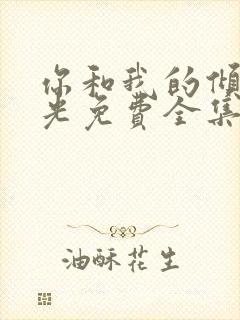 你和我的倾
光免费全集
油酥花生